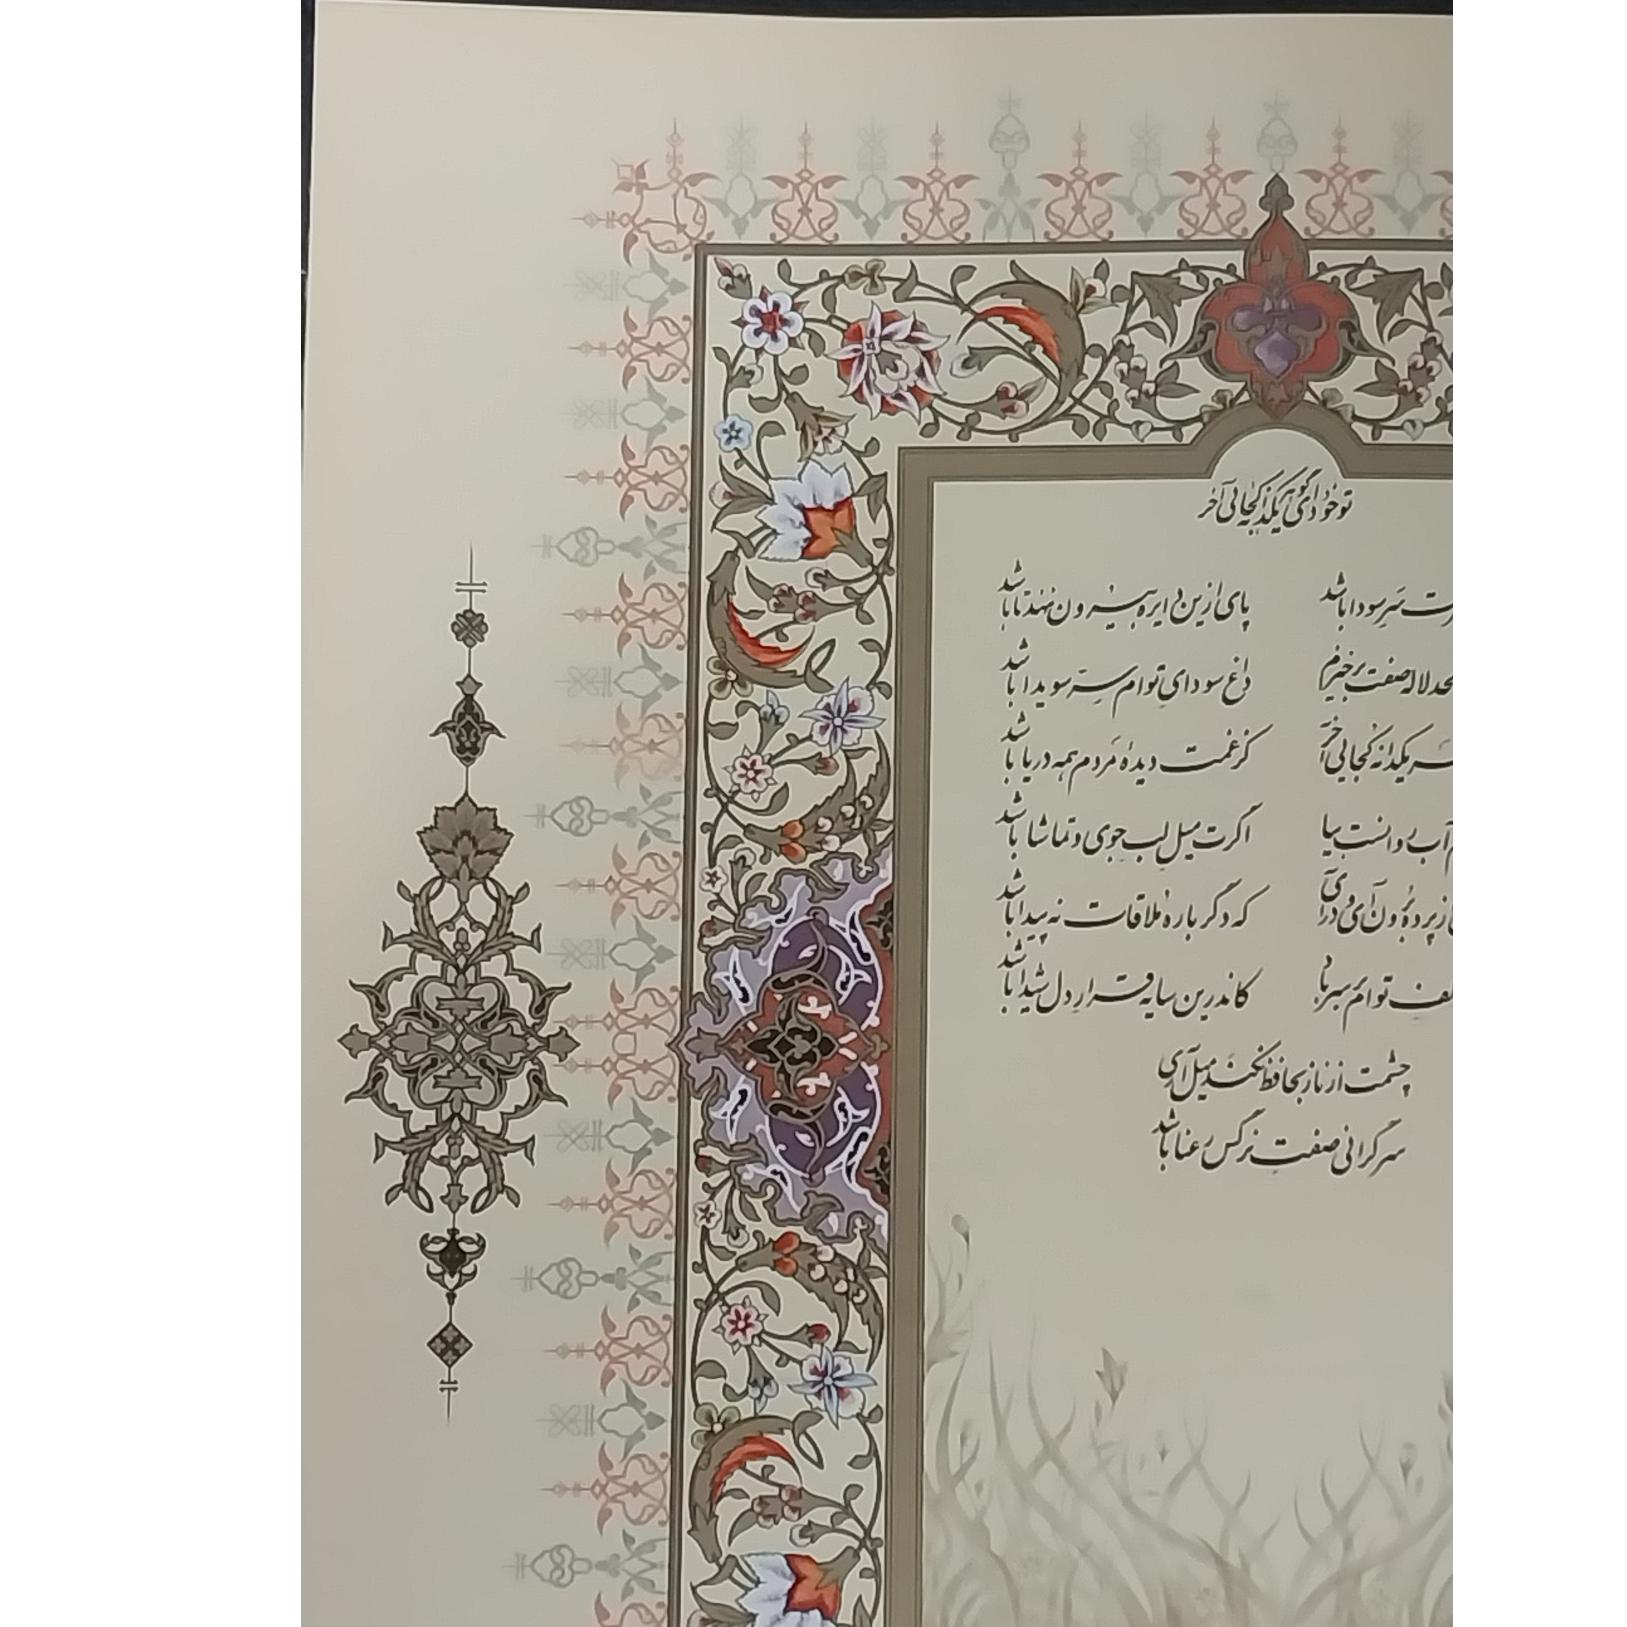 تو خود ای گوهر یکدانه کجایی آخر
سر سودا باشد پای ازین دایره بیرون ننهد تا باشد
لاله صفت برخیزم داغ سودای توام سر سویدا باشد
یکدانه کجایی آخر کز غمت دیده مردم همه دریا باشد
آب روانست بیا اگرت میل لب جوی و تماشا باشد
از پرده برون آی و درآی که دگرباره ملاقات نه پیدا باشد
توام بر سر باد کاندرین سایه قرار دل شیدا باشد
چشمت از ناز بحافظ نکند میل آری
سرگرانی صفت نرگس رعنا باشد